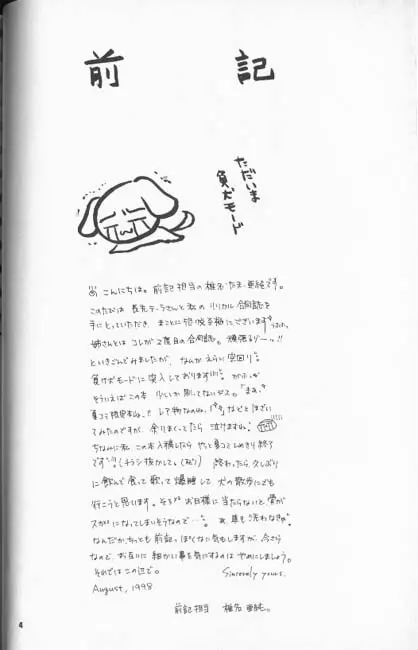 前記
ただいま
負犬モード
こんにちは。前記担当の椎名・たま・亜純です。
このたびは 長先テーラさんと私の リリカル合同誌を
手にとっていただき、まことに 恐悦至極にございます
姉さんとは コレが2度目の合同誌。頑張るゾー。!!
といきごんでみましたが、なんか えらい空回り
負けずモードに突入しております
そういえばこの本 少ししか刷ってないデス。
夏コミ
てみたのですが、余りまくってたら 泣けますね。
ちなみに私、この本入稿したら やっと夏コミしめきり終了
です (チラシ抜かして。) 終わったら、久しぶり
に飲んで 食って 歌って 爆睡して 犬の散歩にでも
行こうと思います。そろそろ お日様に当たらないと、骨が
スカになってしまいそうなので…。あ、車も洗わなきゃ。
なんだか、ちっとも 前記っぽくない気もしますが、今さら
なので、お互いに 細かい事を気にするのは やめにしましょう。
それでは この辺で。 Sincerely yours.
August, 1998
前記担当 椎名 亜純。
4